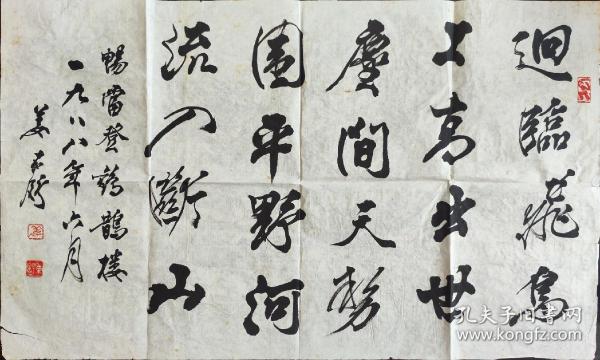 迴臨飛鳥
上高出世
塵間天勢
围平野河
流入斷山
暢當登鸛鵲樓
一九八八年六月
姜东舒
孔夫子旧书网
www.kongfz.com